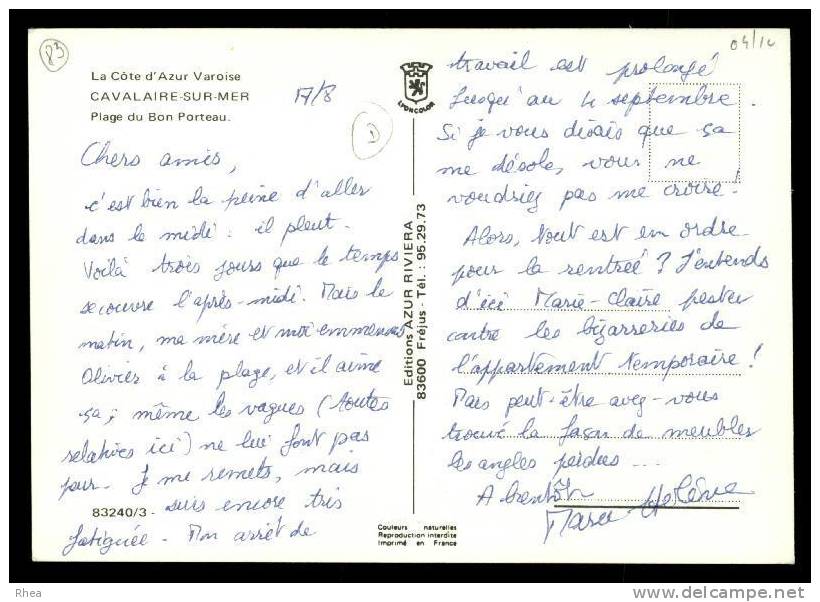 83
04/10
La Côte d'Azur Varoise
CAVALAIRE-SUR-MER
Plage du Bon Porteau.
17/8
D
LYONCOLOR
Chers amis,
c'est bien la peine d'aller
dans le midi : il pleut.
Voilà trois jours que le temps
se couvre l'après-midi. Mais le
matin, ma mère et moi emmenons
Olivier à la plage, et il aime
ça ; même les vagues (toutes
relatives ici) ne lui font pas
peur. Je me remets, mais
suis encore très
fatiguée - Mon arrêt de
83240/3 -
Editions AZUR RIVIERA
83600 Fréjus - Tél. : 95.29.73
Couleurs naturelles
Reproduction interdite
Imprimé en France
travail est prolongé
jusqu'au 4 septembre.
Si je vous disais que ça
me désole, vous ne
voudriez pas me croire !
Alors, tout est en ordre
pour la rentreé ? J'entends
d'ici Marie-Claire pester
contre les bizarreries de
l'appartement temporaire !
Mais peut-être avez-vous
trouvé la façon de meubler
les angles perdus ...
A bientôt
Marie Hélène
Rhea
www.delcampe.net